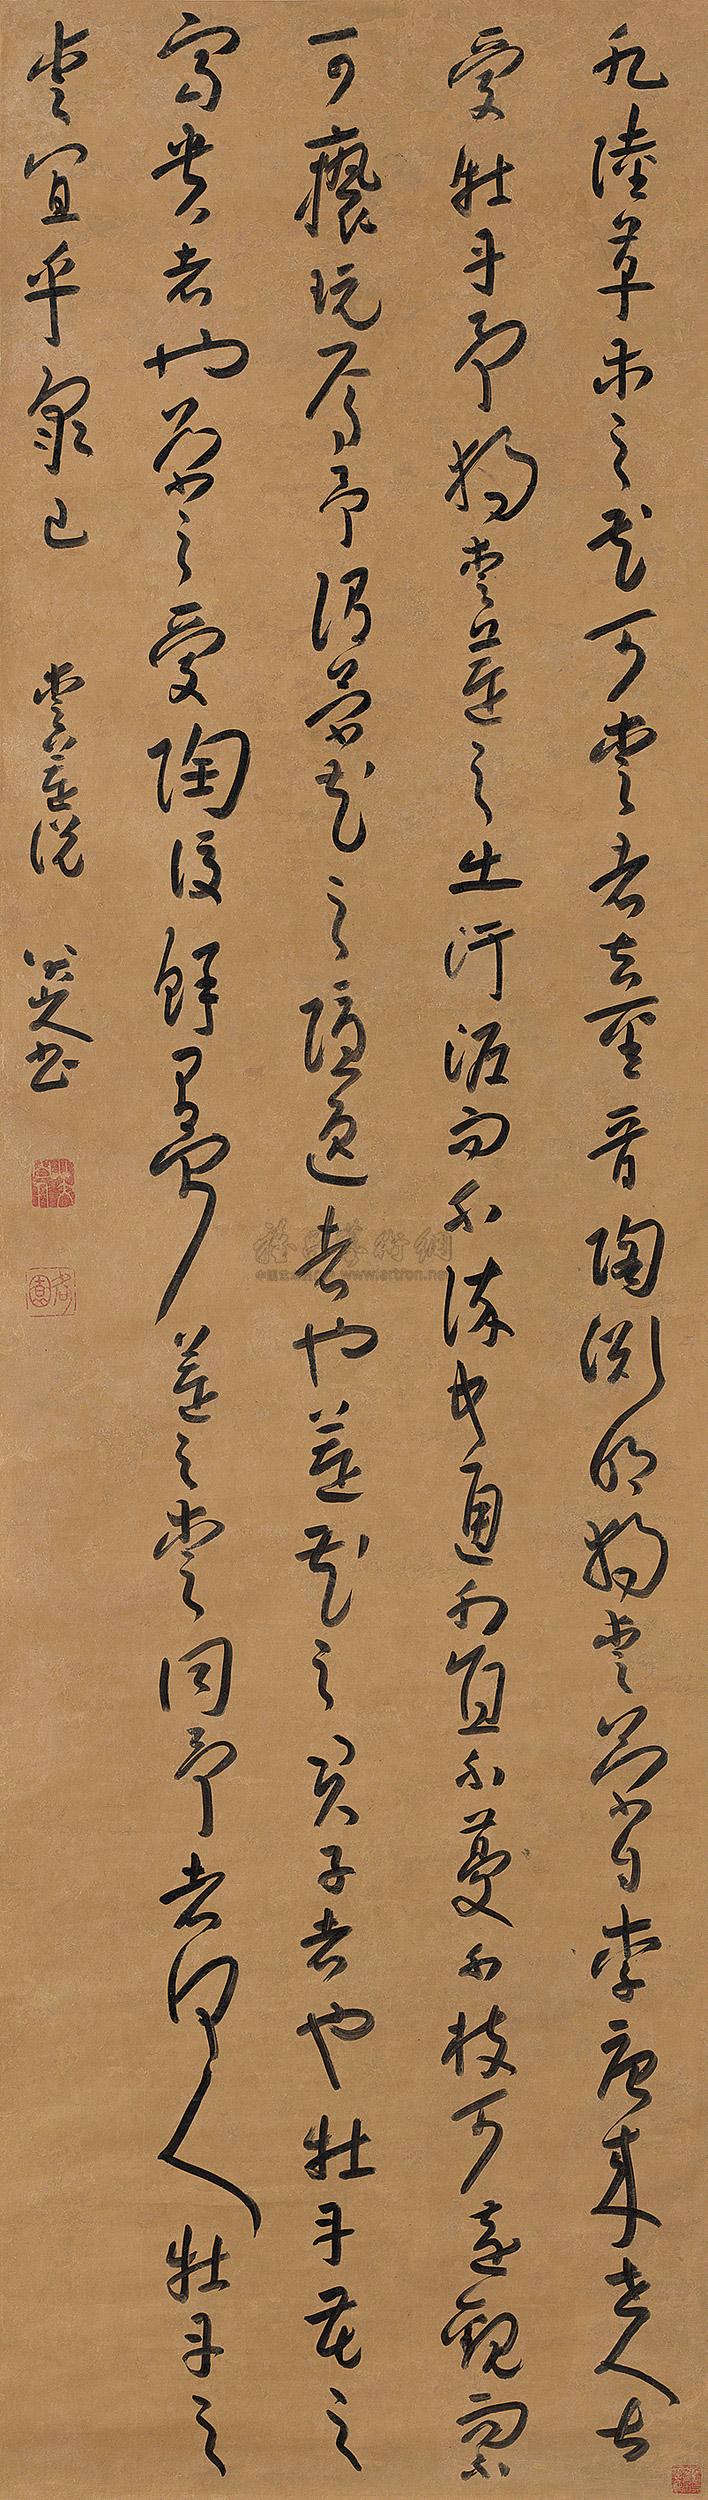 水陸草木之花可愛者甚蕃晉陶淵明獨愛菊自李唐來世人甚
愛牡丹予獨愛蓮之出汙泥而不染中通外直不蔓不枝可遠觀而不
可褻玩焉予謂菊花之隱逸者也蓮花之君子者也牡丹花之
富貴者也菊之愛陶後鮮有聞蓮之愛同予者何人牡丹之
愛宜乎眾已 愛蓮說 八大山人書
雅昌藝術網
www.artron.net